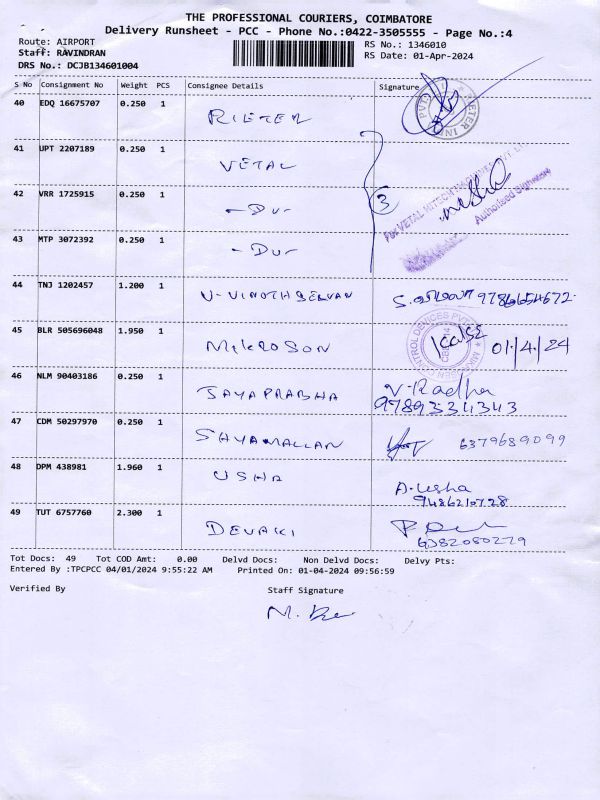 THE PROFESSIONAL COURIERS, COIMBATORE
Delivery Runsheet - PCC - Phone No.:0422-3505555 - Page No.:4
Route: AIRPORT RS No.: 1346010
Staff: RAVINDRAN RS Date: 01-Apr-2024
DRS No.: DCJB134601004
S No Consignment No Weight PCS Consignee Details Signature
40 EDQ 16675707 0.250 1 RIETER
41 UPT 2207189 0.250 1 VETAL
42 VRR 1725915 0.250 1 - Du - 3
For VETAL HITECH MACHINES PVT. LTD
Authorised Signatory
43 MTP 3072392 0.250 1 - Du -
44 TNJ 1202457 1.200 1 V-VINOTHSELVAN 9786654672
45 BLR 505696048 1.950 1 MIKROSON 01/4/24
46 NLM 90403186 0.250 1 JAYAPRABHA V. Radha
9789334343
47 CDM 50297970 0.250 1 SAYAMALLAN 6379689099
48 DPM 438981 1.960 1 USHA A. Usha
9486210728
49 TUT 6757760 2.300 1 DEVAKI
6382080229
Tot Docs: 49 Tot COD Amt: 0.00 Delvd Docs: Non Delvd Docs: Delvy Pts:
Entered By :TPCPCC 04/01/2024 9:55:22 AM Printed On: 01-04-2024 09:56:59
Verified By Staff Signature